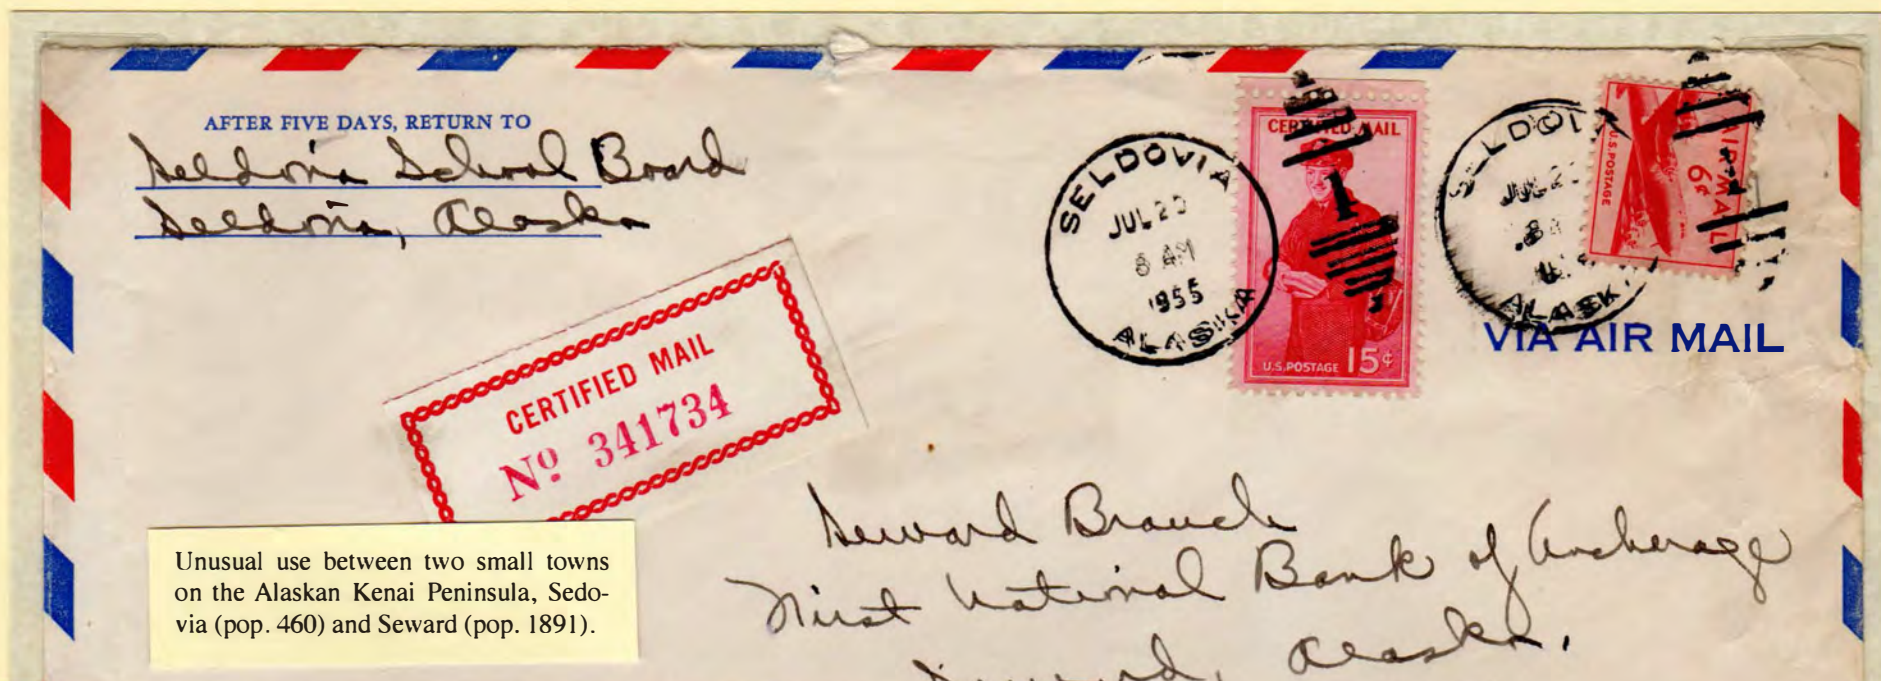 AFTER FIVE DAYS, RETURN TO
Seldovia School Board
Seldovia, Alaska
SELDOVIA
JUL 20
8 AM
1955
ALASKA
CERTIFIED MAIL
1
U.S. POSTAGE 15¢
SELDOVI
JUL 2
8 A
ALASK
AIR MAIL
6¢
U.S. POSTAGE
VIA AIR MAIL
CERTIFIED MAIL
Nº 341734
Seward Branch
First National Bank of Anchorage
Seward, Alaska.
Unusual use between two small towns
on the Alaskan Kenai Peninsula, Sedo-
via (pop. 460) and Seward (pop. 1891).